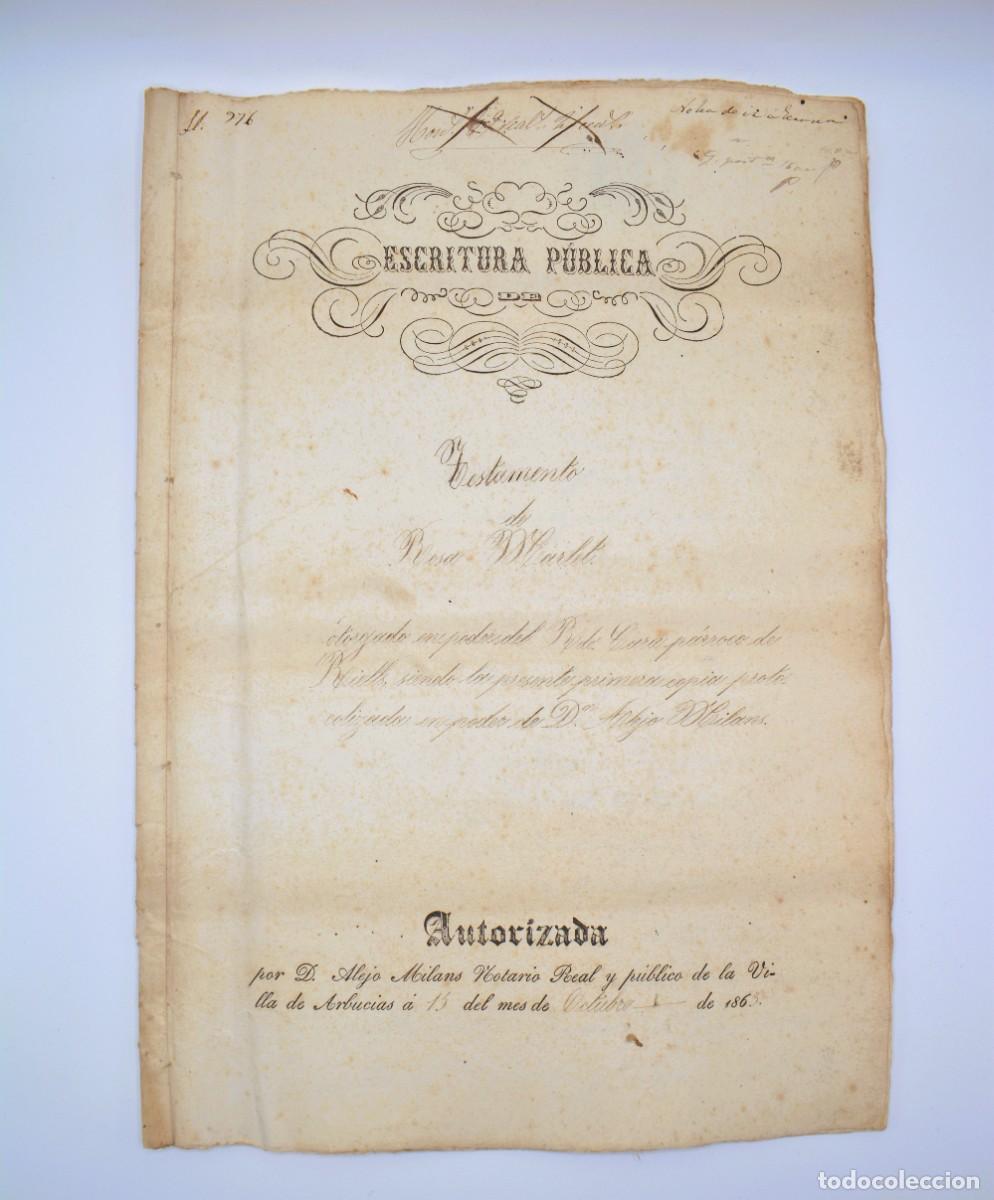 276
ESCRITURA PÚBLICA
DE
Testamento
de
Rosa Marlet.
otorgado en poder del Rdo. Cura-párroco de
Riells, siendo la presente primera copia proto-
colizada en poder de Dn. Alejo Milans.
Autorizada
por D. Alejo Milans Notario Real y público de la Vi-
lla de Arbucias á 15 del mes de Octubre de 1863.
todocoleccion